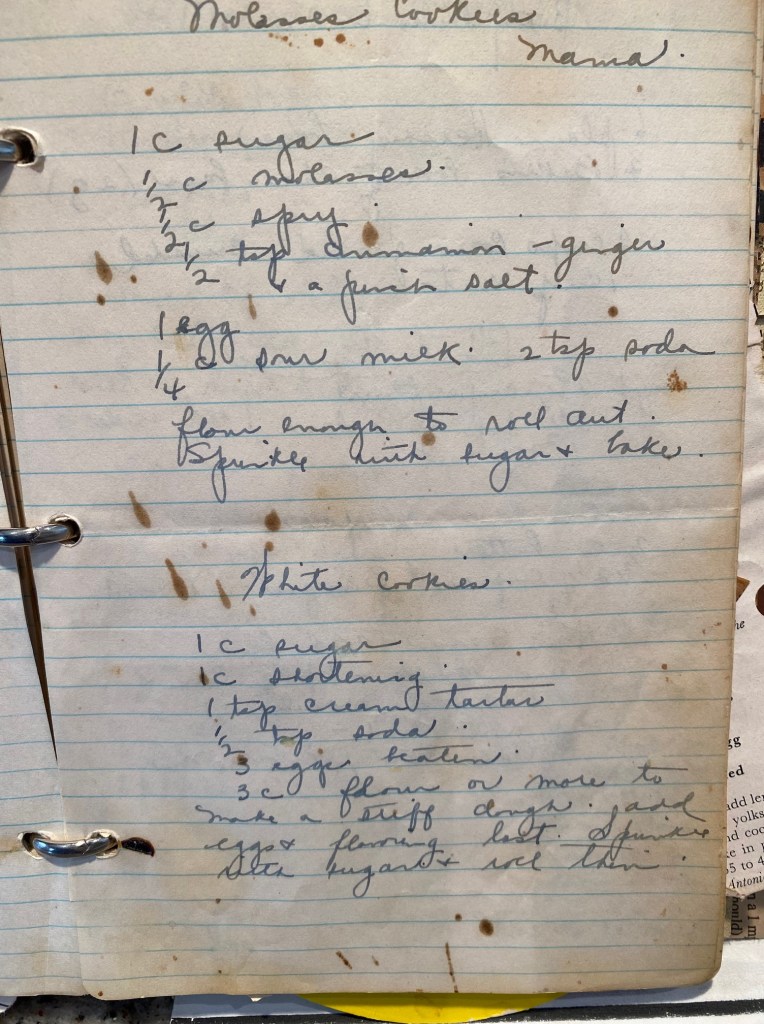 Molasses Cookies
Mama.
1 c sugar
1/2 c molasses.
1/2 c spry.
1/2 tsp cinnamon - ginger
& a pinch salt.
1 egg
1/4 c sour milk. 2 tsp soda
flour enough to roll out.
Sprinkle with sugar & bake.
White Cookies.
1 c sugar
1c shortening
1 tsp cream tartar
1/2 tsp soda.
3 eggs beaten.
3 c flour or more to
make a stiff dough. add
eggs & flavoring last. Sprinkle
with sugar & roll thin.
gg
ed
add
yolks
5 to 4
Antoni